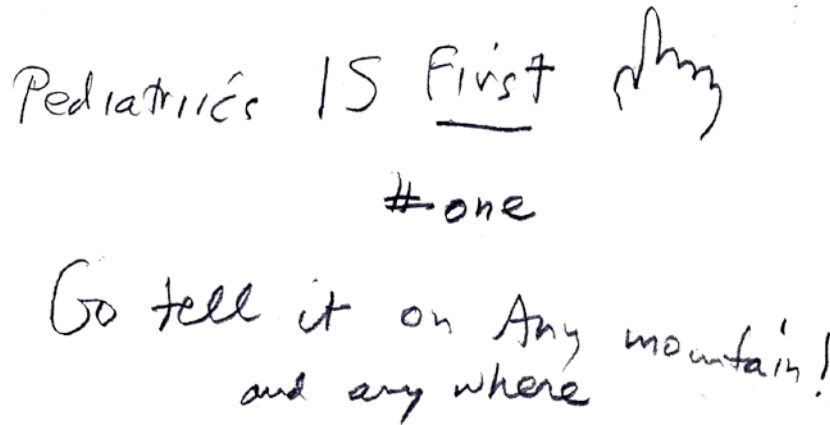 Pediatriics IS First
# one
Go tell it on Any mountain!
and any where